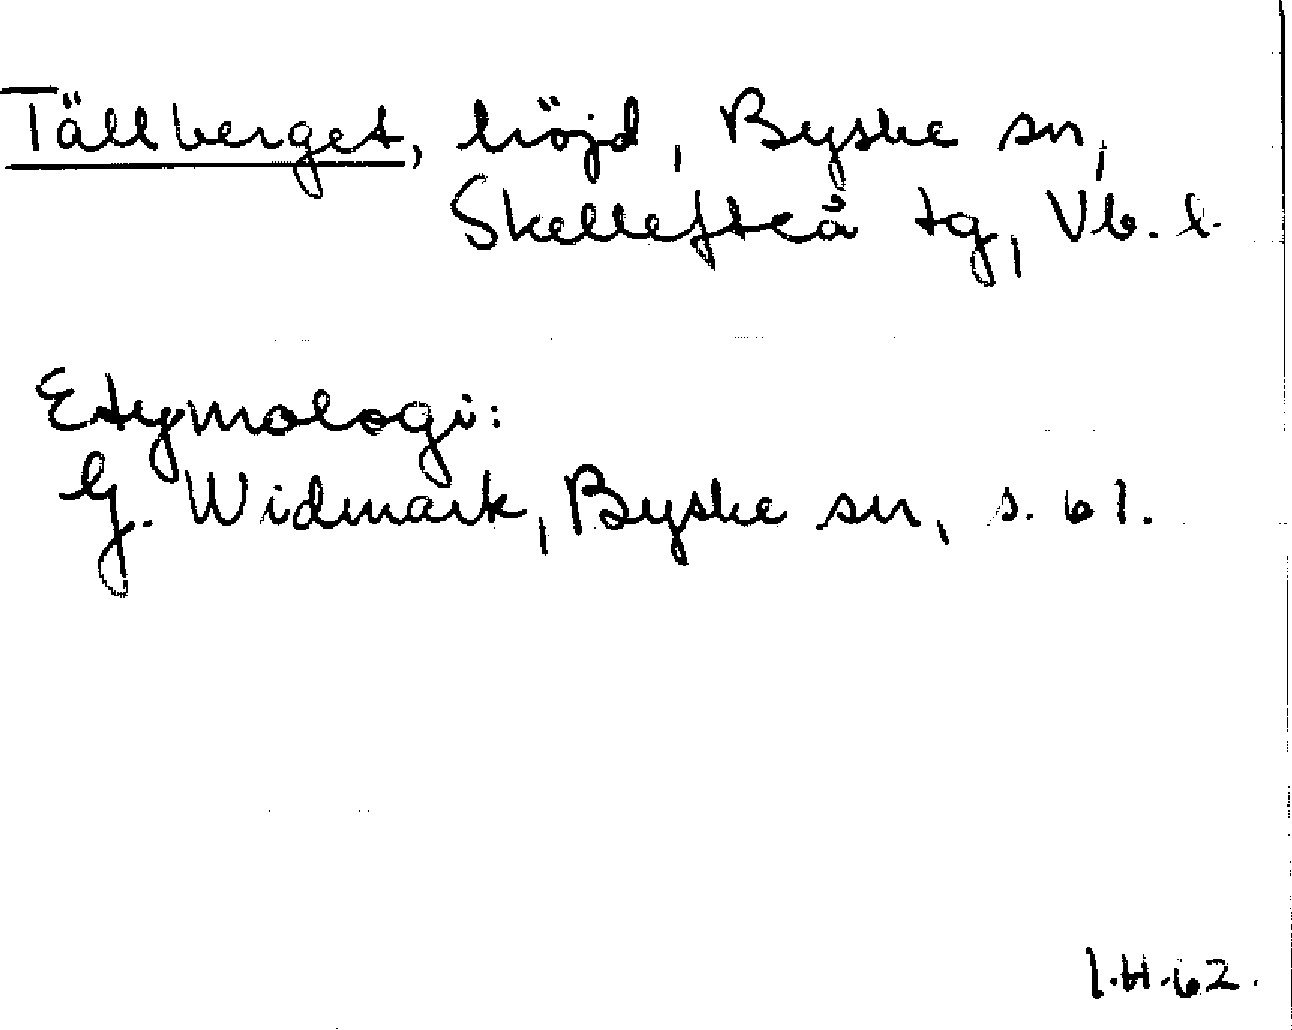 Tällberget, höjd, Byske sn,
Skellefteå tg, Vb. l.
Etymologi:
G. Widmark, Byske sn, s. 61.
I.H.62.